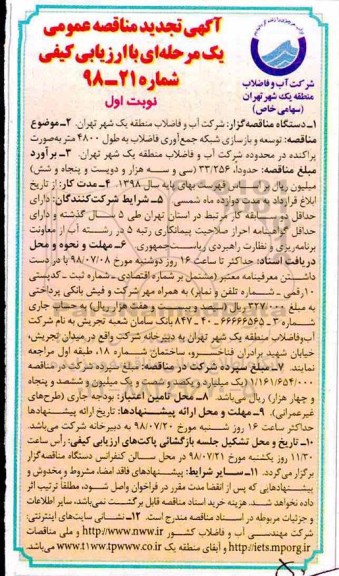 آگهی تجدید مناقصه عمومی
یک مرحله‌ای با ارزیابی کیفی
شماره ۲۱-۹۸
نوبت اول
شرکت آب و فاضلاب
منطقه یک شهر تهران
(سهامی خاص)
۱ـ دستگاه مناقصه‌گزار: شرکت آب و فاضلاب منطقه یک شهر تهران. ۲ـ موضوع
مناقصه: توسعه و بازسازی شبکه جمع‌آوری فاضلاب به طول ۴۸۰۰ متر به‌صورت
پراکنده در محدوده شرکت آب و فاضلاب منطقه یک شهر تهران. ۳ـ برآورد
مبلغ مناقصه: حدوداً ۳۳/۲۵۶ (سی و سه هزار و دویست و پنجاه و شش)
میلیون ریال براساس فهرست بهای پایه سال ۱۳۹۸. ۴ـ مدت کار: از تاریخ
ابلاغ قرارداد به مدت دوازده ماه شمسی. ۵ـ شرایط شرکت‌کنندگان: دارای
حداقل دو سابقه کار مرتبط در استان تهران طی ۵ سال گذشته و دارای
حداقل گواهینامه احراز صلاحیت پیمانکاری رتبه ۵ در رشته آب از معاونت
برنامه‌ریزی و نظارت راهبردی ریاست‌جمهوری. ۶ـ مهلت و نحوه و محل
دریافت اسناد: حداکثر تا ساعت ۱۶ روز دوشنبه مورخ ۹۸/۰۷/۰۸ با در دست
داشتن معرفینامه معتبر (مشتمل بر شماره اقتصادی ـ شماره ثبت ـ کدپستی
۱۰رقمی ـ شماره تلفن و نمابر) به همراه مهر شرکت و فیش بانکی پرداختی
به مبلغ ۲۲۷/۰۰۰ ریال (دویست و بیست و هفت هزار ریال) به حساب جاری
شماره ۳ـ ۶۶۶۶۶۵۶۵ ـ ۴۰ ـ ۸۴۷ بانک سامان شعبه تجریش به نام شرکت
آب‌وفاضلاب منطقه یک شهر تهران به دبیرخانه شرکت واقع در میدان تجریش،
خیابان شهید برادران فناخسرو، ساختمان شماره ۱۸، طبقه اول مراجعه
نمایند. ۷ـ مبلغ سپرده شرکت در مناقصه: تضمین سپرده شرکت در مناقصه
۱/۱۶۱/۶۵۴/۰۰۰ (یک میلیارد و یکصد و شصت و یک میلیون و ششصد و پنجاه
و چهار هزار) ریال می‌باشد. ۸ـ محل تامین اعتبار: بودجه جاری (طرح‌های
غیرعمرانی). ۹ـ مهلت و محل ارائه پیشنهادها: تاریخ ارائه پیشنهادها
حداکثر ساعت ۱۶ روز شنبه مورخ ۹۸/۰۷/۲۰ به دبیرخانه شرکت می‌باشد.
۱۰ـ تاریخ و محل تشکیل جلسه بازگشائی پاکت‌های ارزیابی کیفی: رأس ساعت
۱۱/۳۰ روز یکشنبه مورخ ۹۸/۰۷/۲۱ در محل سالن کنفرانس دستگاه مناقصه‌گزار
برگزار می‌گردد. ۱۱ـ سایر شرایط: پیشنهادهای فاقد امضا، مشروط و مخدوش و
پیشنهادهایی که پس از انقضا مدت مقرر در فراخوان واصل شود، مطلقاً ترتیب اثر
داده نخواهد شد. هزینه خرید اسناد مناقصه قابل برگشت نمی‌باشد، سایر اطلاعات
و جزئیات مربوطه در اسناد مناقصه مندرج است. ۱۲ـ نشانی سایت‌های اینترنتی:
شرکت مهندسی آب و فاضلاب کشور http://www.nww.ir و ملی مناقصات
http://iets.mporg.ir و آبفای منطقه یک www.t1.tpww.co.ir می‌باشد